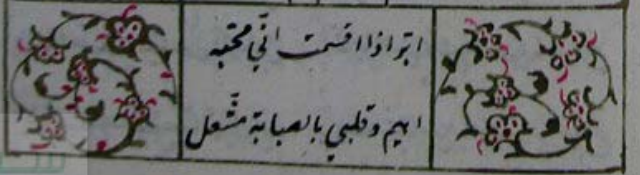 ابر اذا اقسمت انّي محبه
اهيم وقلبي بالصبابة مشعل